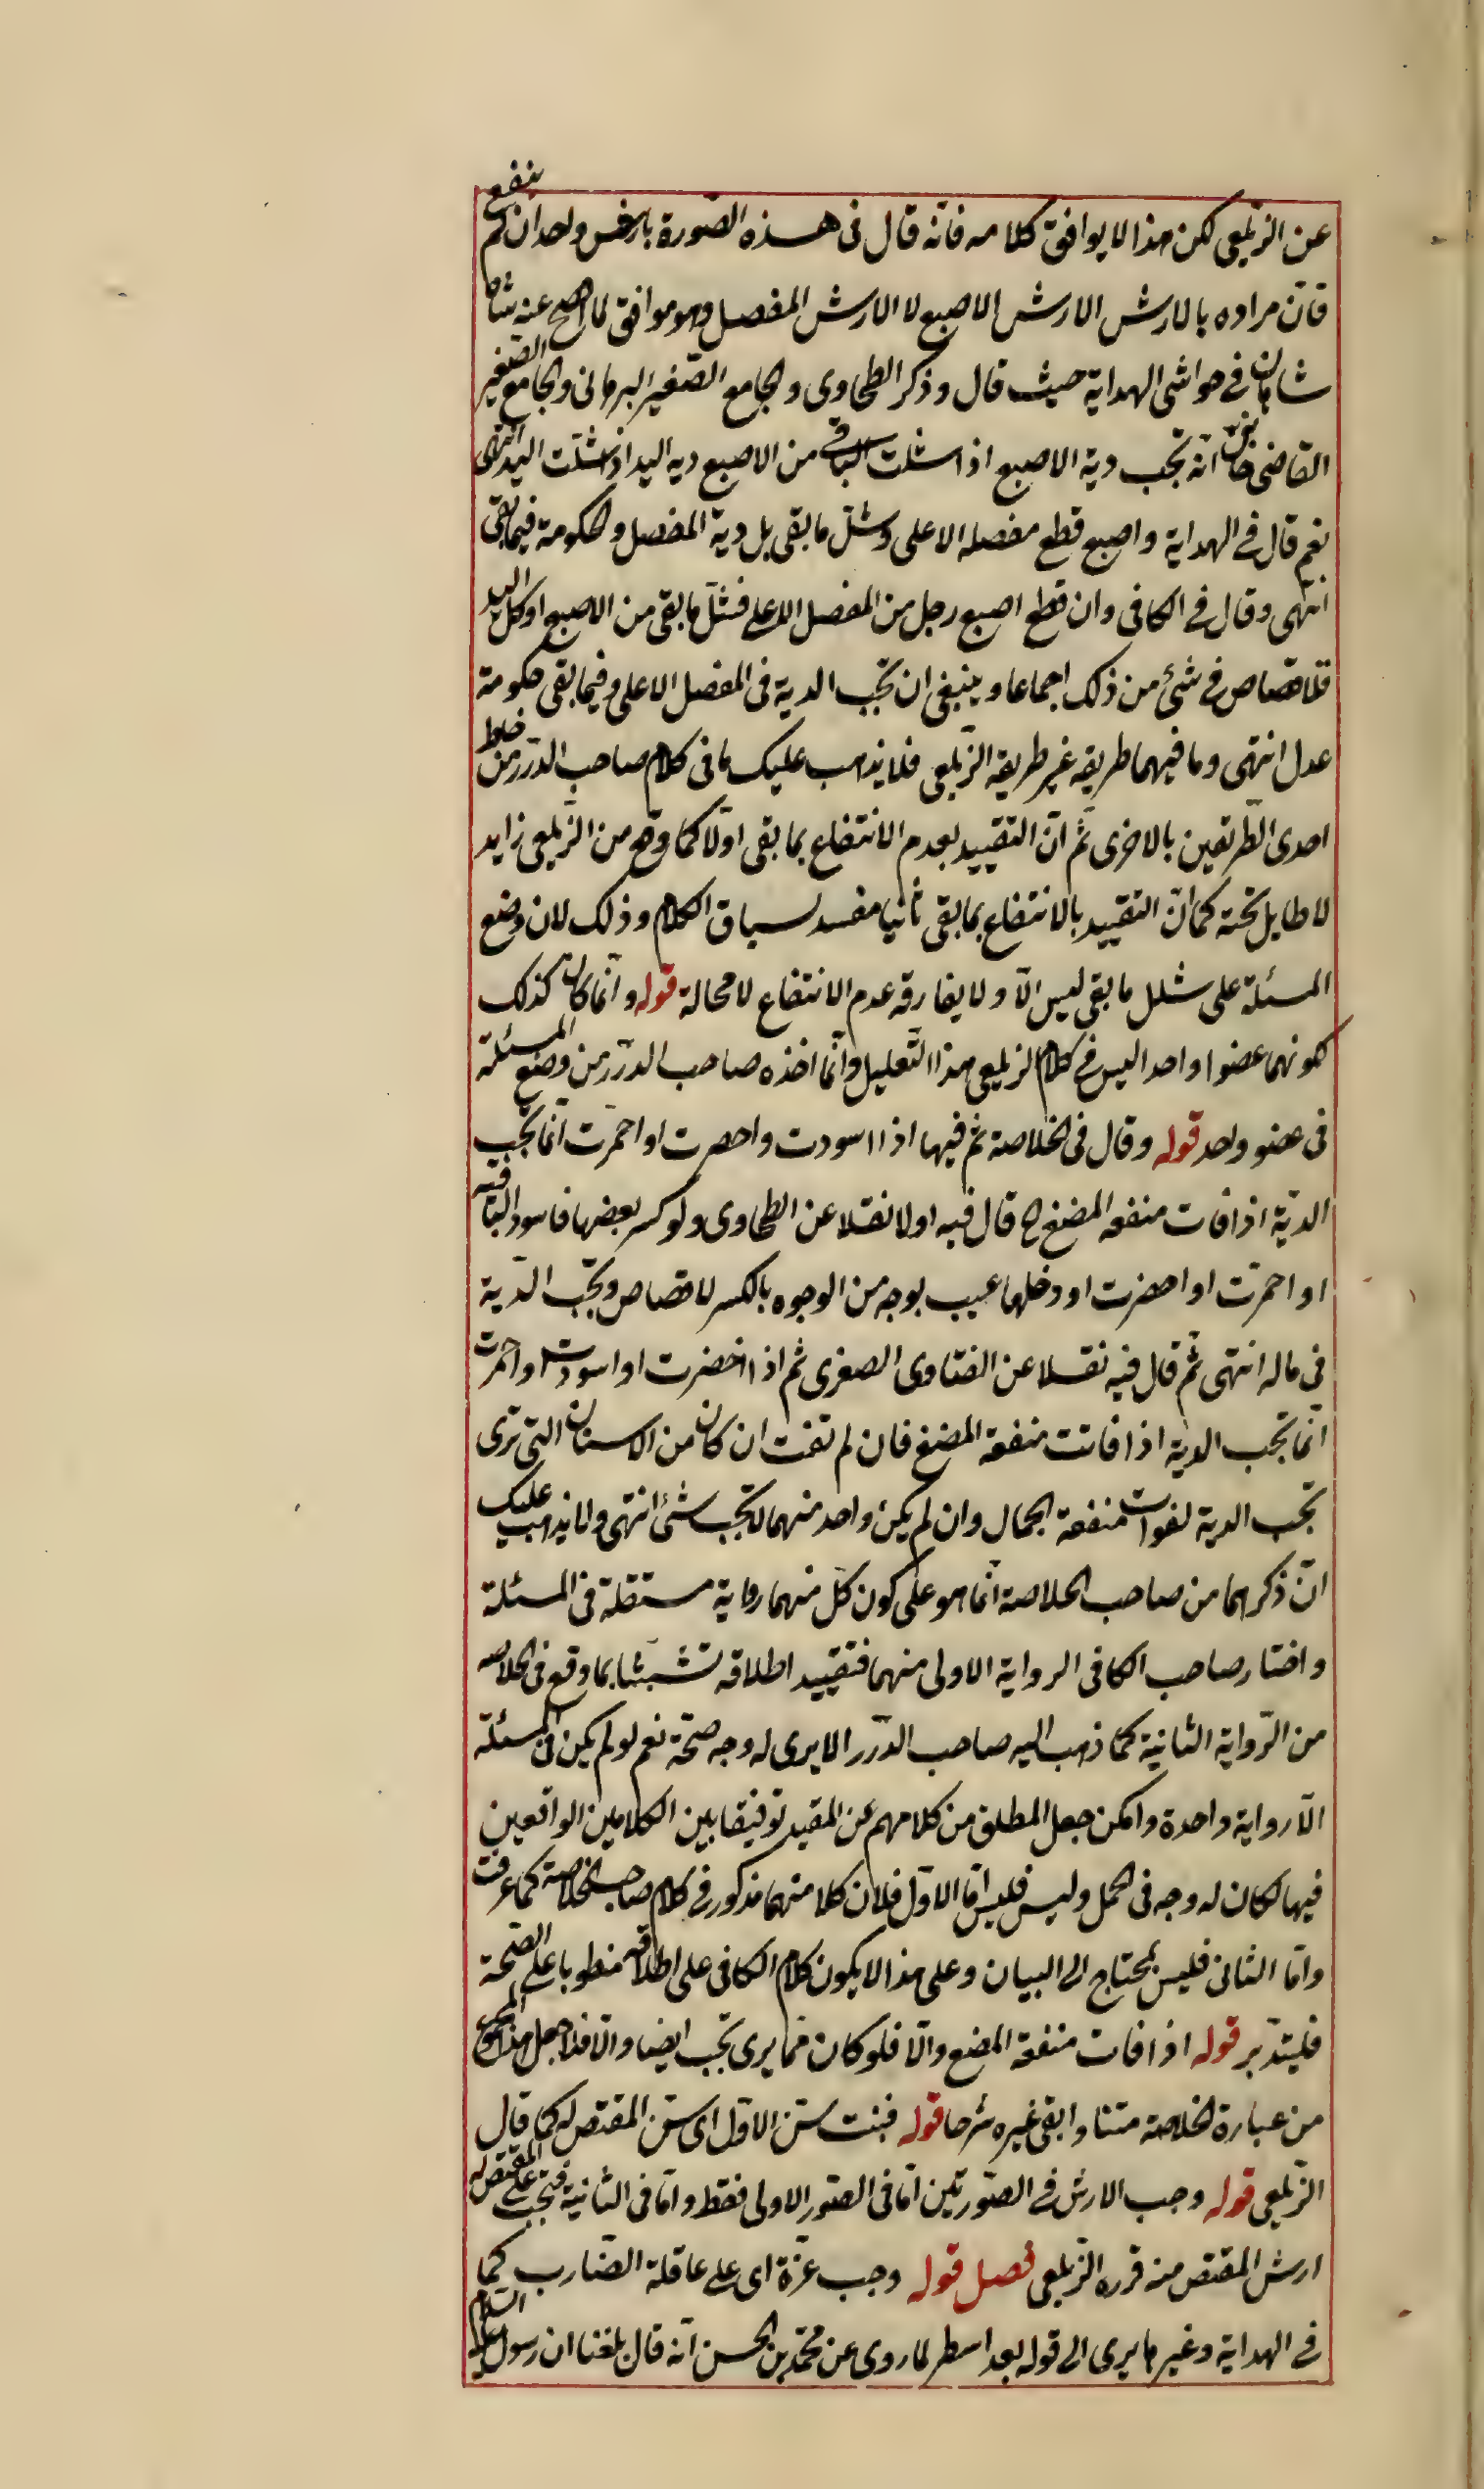 عن الزيلعي لكن هذا لا يوافق كلامه فانه قال في هذه الصورة بارش واحد ان لم ينفع
فان مراده بالارش الارش الاصبع لا الارش المفصل وهو موافق لما عنه
في حواشي الهداية حيث قال وذكر الطحاوي والجامع الصغير البرهاني والجامع الصغير
القاضي خان انه تجب دية الاصبع اذا شلت الباقي من الاصبع دية اليد اذا شلت اليد انتهى
نعم قال في الهداية واصبع قطع مفصله الاعلى وشل ما بقي بل دية المفصل والحكومة فيما بقي
انتهى وقال في الكافي وان قطع اصبع رجل من المفصل الاعلى فشل ما بقي من الاصبع او كل اليد
فلا قصاص في شئ من ذلك اجماعا وينبغي ان تجب الدية في المفصل الاعلى وفيما بقي حكومة
عدل انتهى وما فيهما طريقه غير طريقه الزيلعي فلا يذهب عليك ما في كلام صاحب الدرر من خلط
احدى الطريقين بالاخرى ثم ان التقييد بعدم الانتفاع بما بقي اولا كما وقع من الزيلعي زايد
لا طايل تحته كما ان التقييد بالانتفاع بما بقي ثانيا مفسد لسياق الكلام وذلك لان وضع
المسئلة على شلل ما بقي ليس الا ولا يفارقه عدم الانتفاع لا محالة قوله وانما كان كذلك
لكونهما عضوا واحدا ليس في كلام الزيلعي هذا التعليل وانما اخذه صاحب الدرر من وضع المسئلة
في عضو واحد قوله وقال في الخلاصة ثم فيها اذا اسودت واحصرت او احمرت انما تجب
الدية اذا فات منفعه المضغ ح قال فيه اولا نقلا عن الطحاوي ولو كسر بعضها فاسود الباقيه
او احمرت او احضرت او دخلها عيب بوجه من الوجوه بالكسر لا قصاص وتجب الدية
في ماله انتهى ثم قال فيه نقلا عن الفتاوى الصغرى ثم اذا اخضرت او اسودت او احمرت
انما تجب الدية اذا فاتت منفعة المضغ فان لم تفت ان كان من الاسنان التي ترى
تجب الدية لفوات منفعة الجمال وان لم يكن واحد منهما لا تجب شئ انتهى ولا يذهب عليك
ان ذكرهما من صاحب الخلاصة انما هو على كون كل منهما رواية مستقلة في المسئلة
واختار صاحب الكافي الرواية الاولى منهما فتقييد اطلاقه تشبثا بما وقع في الخلاصه
من الرواية الثانية كما ذهب اليه صاحب الدرر لا يرى له وجه صحة نعم لو لم يكن في المسئلة
الا رواية واحدة وامكن جعل المطلق من كلامهم عن المقيد توفيقا بين الكلامين الواقعين
فيها لكان له وجه في الحمل وليس فليس اما الاول فلان كلا منهما مذكور في كلام صاحب الخلاصة كما عرفت
واما الثاني فليس بمحتاج الى البيان وعلى هذا لا يكون كلام الكافي على اطلاقه منطويا على الصحة
فليتدبر قوله اذا فات منفعة المضغ والا فلو كان مما يرى تجب ايضا والا فلا جعل هذا المجموع
من عبارة الخلاصة متنا وابقى غيره شرحا قوله فنبت سن الاول اى سن المقتص له كما قال
الزيلعي قوله وجب الارش في الصورتين اما في الصور الاولى فقط واما في الثانية فتجب على المقتص له
ارش المقتص منه قرره الزيلعي فصل قوله وجب غرة اى على عاقلة الضارب كما
في الهداية وغيرها يرى الى قوله بعد اسطر لما روى عن محمد بن الحسن انه قال بلغنا ان رسول عليه السلام